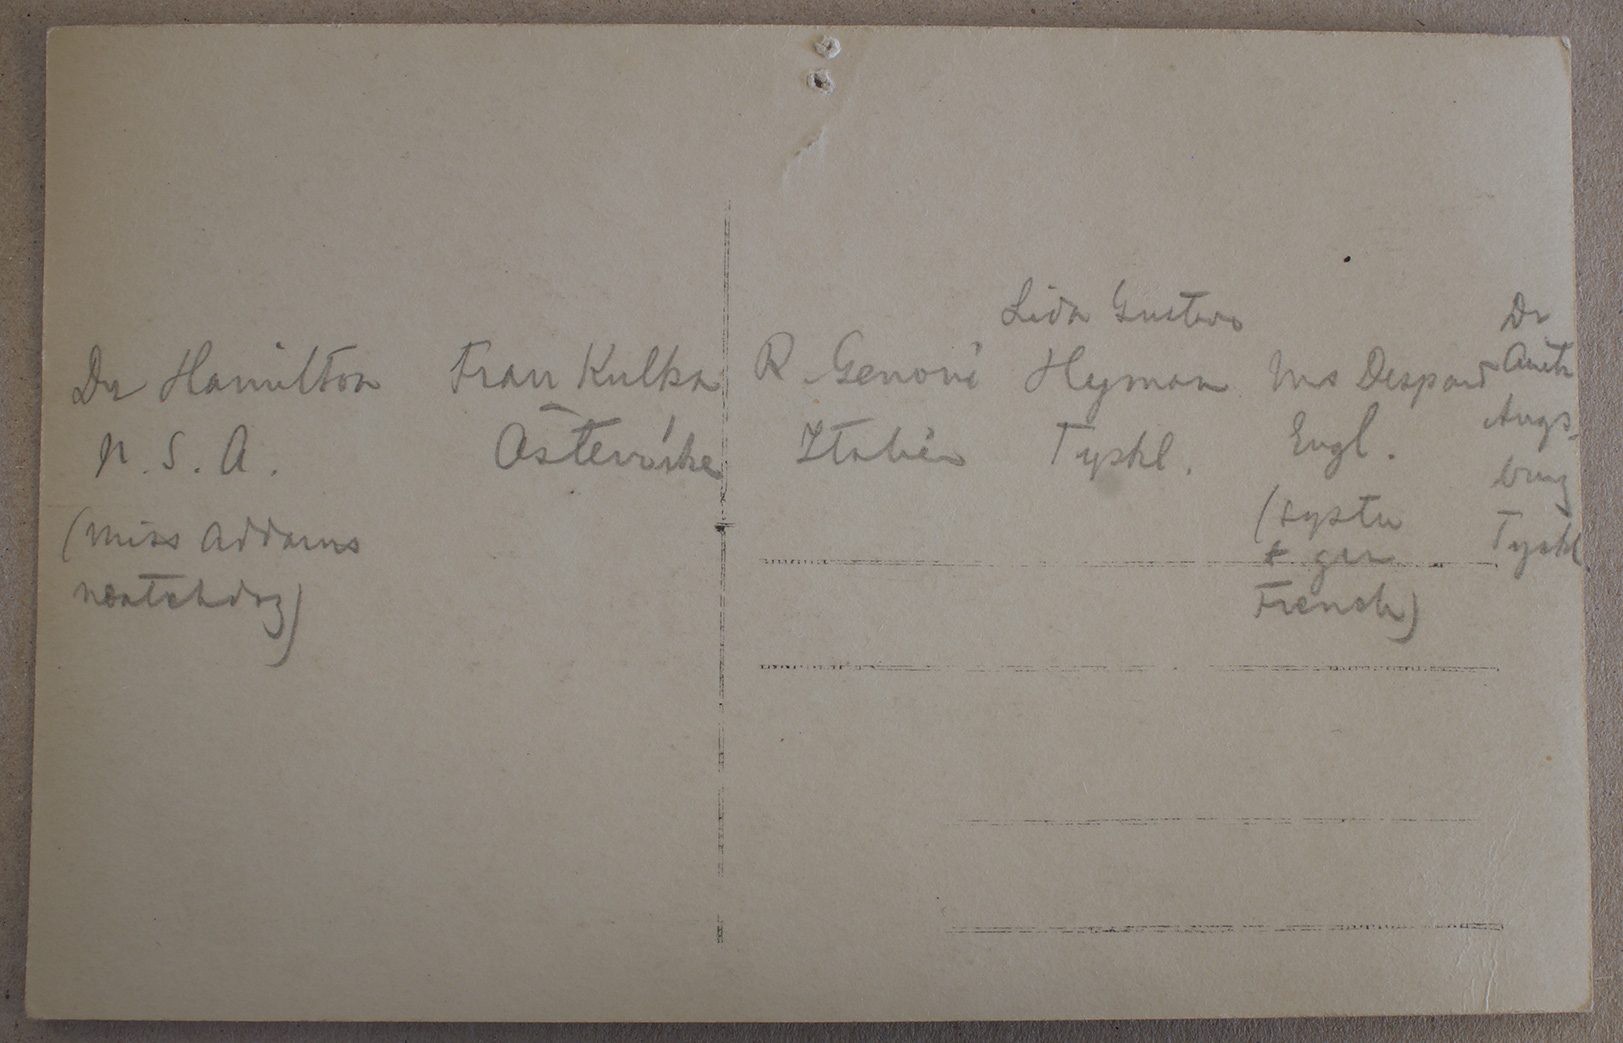 Dr Hamilton
U. S. A.
(Miss Addams
watchdog)
Frau Kulka
Österrike
R. Genoni
Italien
Lida Gustava
Hyman
Tyskl.
Mrs Despard
Engl.
(syster
t. gen
French)
Dr
Anita
Augs-
burg
Tyskl